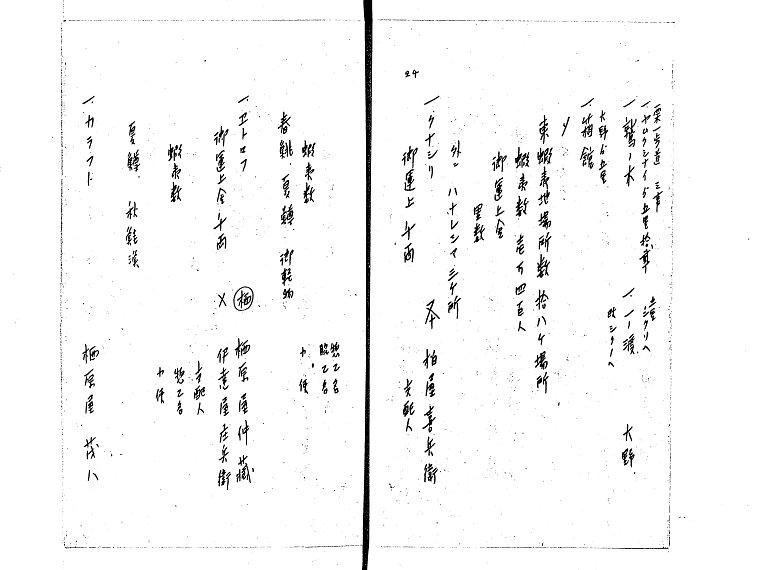 24
栗ノ木道 三里
一、ヤムクシナイゟ五里拾丁
一、鷲ノ木
一、一ノ渡
大野
大野ゟ五里
一、箱館
〆
東蝦夷地場所数拾八ケ場所
蝦夷数 壱万四百人
御運上金
里数
外ニ ハナレシマ三ケ所
一、クナシリ
柏屋喜兵衛
御運上 千両
支配人
惣乙名
脇乙名
蝦夷数
春鯡 夏鱒 御軽物
一、ヱトロフ
栖 栖原屋仲蔵
御運上金千両
× 伊達屋庄兵衛
支配人
蝦夷数
惣乙名
夏鱒 秋鮭漁
一、カラフト
栖原屋 茂八